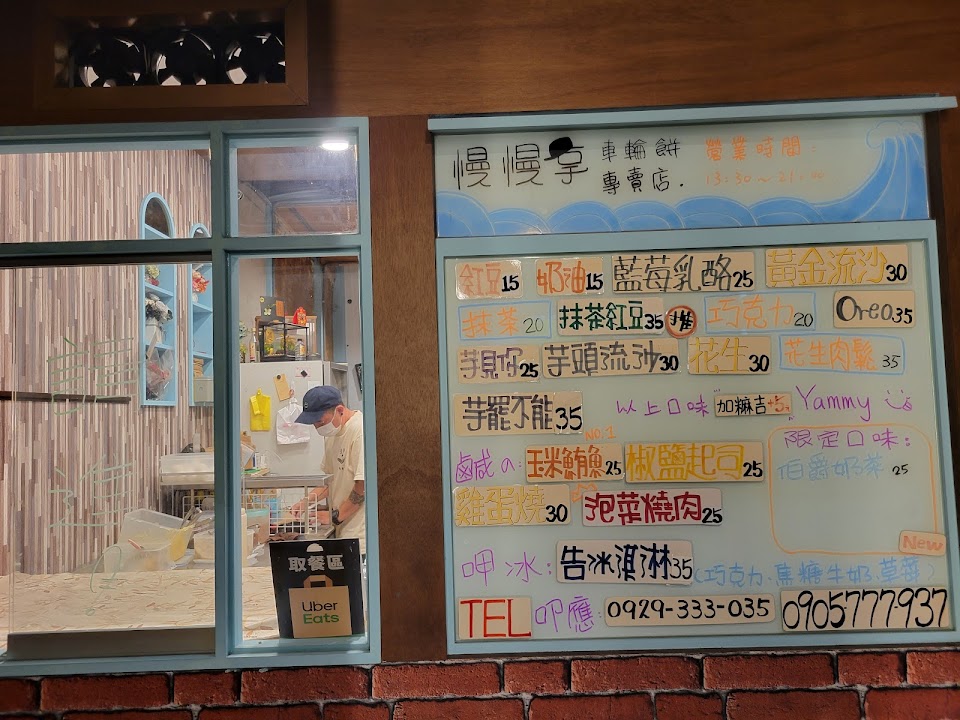 慢慢享 車輪餅
專賣店.
營業時間:
13:30~21:00
紅豆15 奶油15 藍莓乳酪25 黃金流沙30
抹茶20 抹茶紅豆35 推 巧克力20 Oreo35
芋見你25 芋頭流沙30 花生30 花生肉鬆35
芋罷不能35 以上口味 加麻吉+5 Yammy
NO.1
鹹の: 玉米鮪魚25 椒鹽起司25
雞蛋燒30 泡菜燒肉25
限定口味:
伯爵奶茶 25
New
呷冰: 告冰淇淋35 (巧克力.焦糖牛奶.草莓)
TEL 叩應: 0929-333-035 0905777-937
取餐區
Uber
Eats